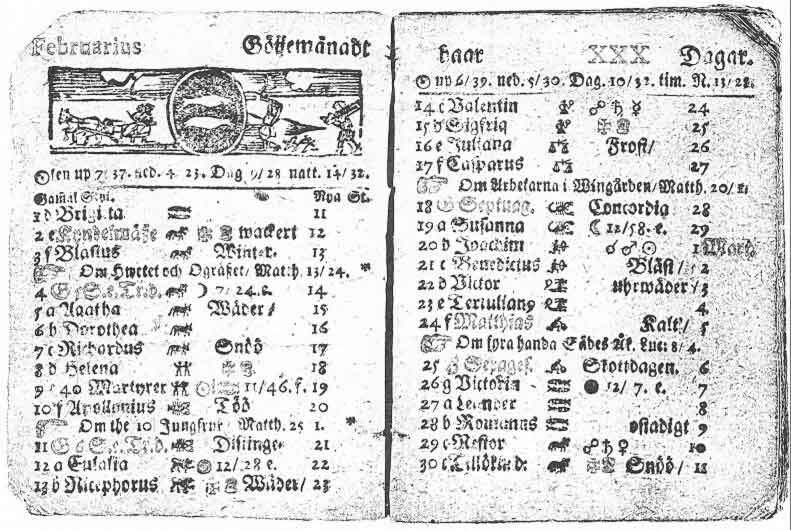 Februarius Götjemånadt
Solen up 7. 37. ned. 4. 23. Dag 9/28 natt. 14/32.
Gamal Styl. Nya St.
1 d Brigitta 11
2 e Kyndelmässe wackert 12
3 f Blasius Winter. 13
Om Hwetet och Ogräset/ Matth. 13/24.
4 G 5 S. e. Tr. d. 7/24. e. 14
5 a Agatha Wäder/ 15
6 b Dorothea 16
7 c Richardus Snöö 17
8 d Helena 18
9 e 40 Martyrer 11/46. f. 19
10 f Apollonius Töö 20
Om the 10 Jungfrur Matth. 25 1.
11 G 6 S. e. Tr. d. Distinge 21
12 a Eulalia 12/28 e. 22
13 b Nicephorus Wäder/ 23
haar XXX Dagar.
up 6/39. ned. 5/30. Dag. 10/32. tim. N. 13/28.
14 c Valentin ☍ ♄ ☿ 24
15 d Sigfrid 25
16 e Juliana Frost/ 26
17 f Casparus 27
Om Arbetarna i Wingården/ Matth. 20/1.
18 G Septuag. Concordia 28
19 a Susanna ☾ 12/58. e. 29
20 b Joachim ☌ ♂ ☉ 1 Mart.
21 c Benedictus Bläst/ 2
22 d Victor uhrwäder/ 3
23 e Tertulianus 4
24 f Matthias Kalt/ 5
Om fyra handa Sädes Åk. Luc: 8/4.
25 G Sexages. Skottdagen. 6
26 g Victorin ● 12/7. e. 7
27 a Leander 8
28 b Romanus ostadigt 9
29 c Nestor ☍ ♄ ♀ 10
30 c Snöö/ 11